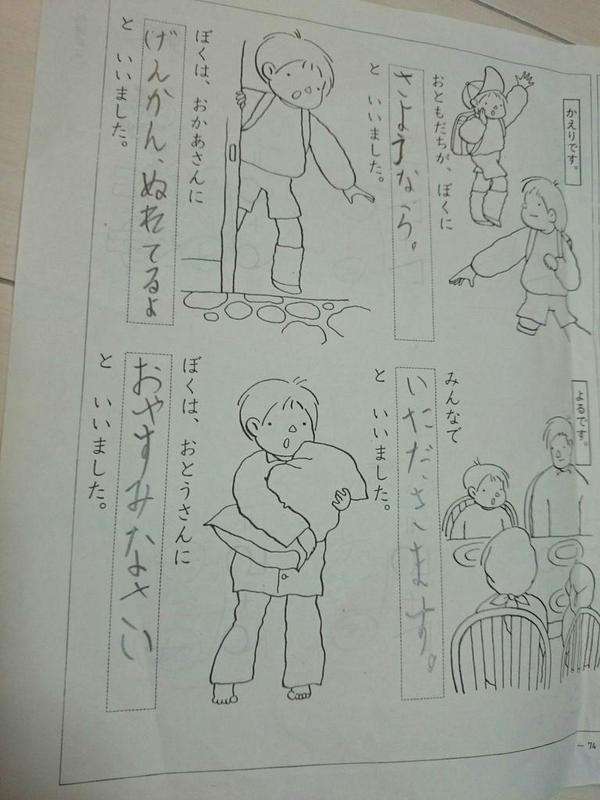 かえりです。
おともだちが、ぼくに
さようなら。
と いいました。
ぼくは、おかあさんに
げんかん、ぬれてるよ
と いいました。
よるです。
みんなで
いただきます。
と いいました。
ぼくは、おとうさんに
おやすみなさい
と いいました。
— 74